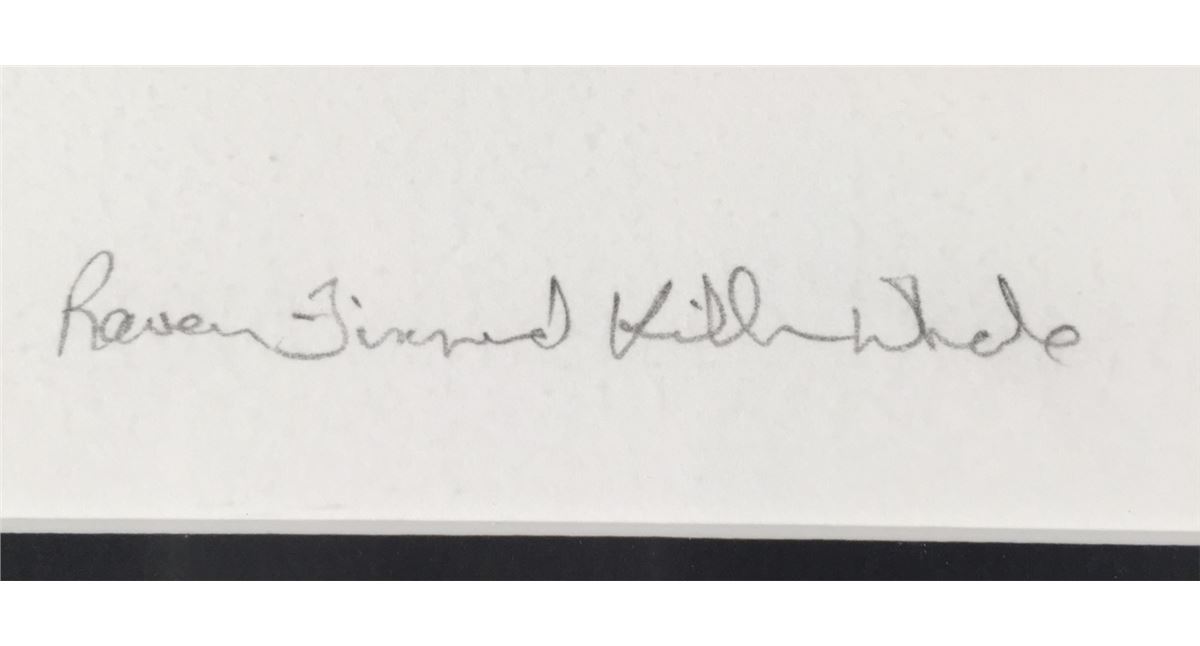 Raven Finned Killer Whale